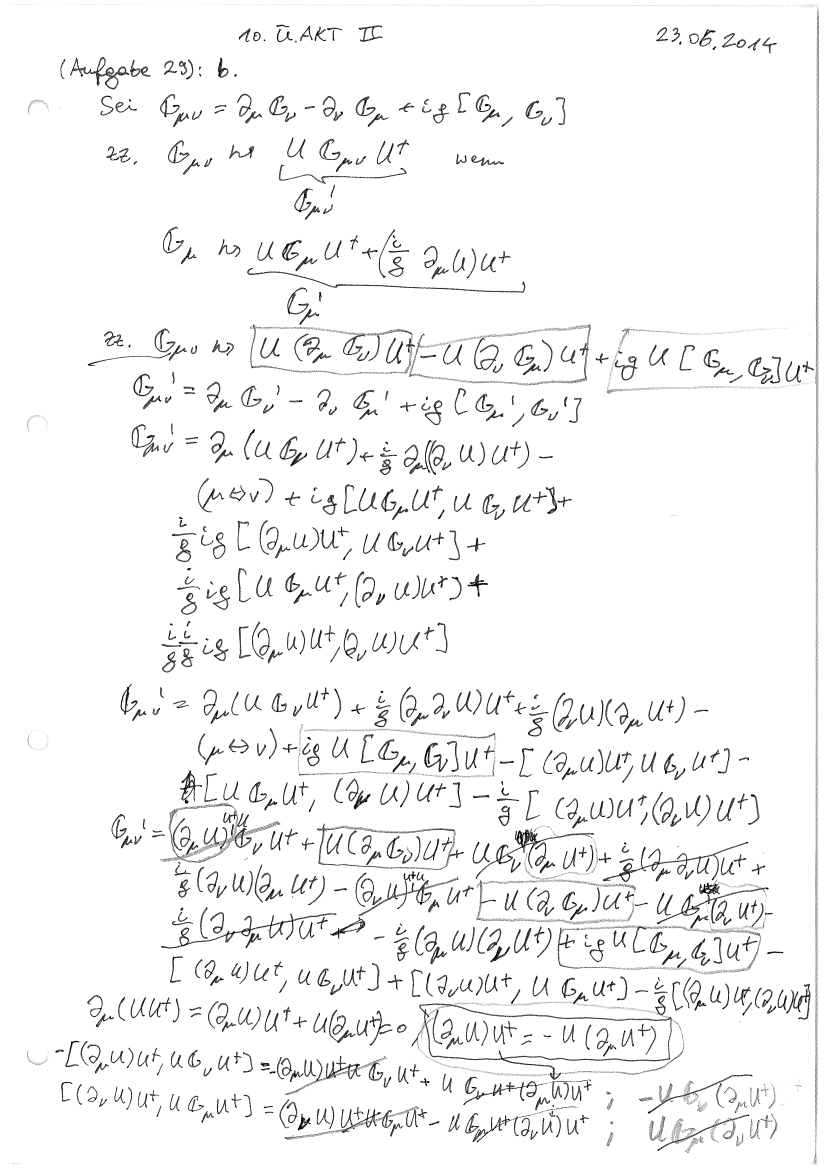 10. Ü. AKT II 23.06.2014
(Aufgabe 29): b.
Sei G_μν = ∂_μ G_ν - ∂_ν G_μ + ig [G_μ, G_ν]
zz. G_μν ↦ U G_μν U† wenn
G_μν'
G_μ ↦ U G_μ U† + (i/g ∂_μ U) U†
G_μ'
zz. G_μν ↦ U (∂_μ G_ν) U† - U (∂_ν G_μ) U† + ig U [G_μ, G_ν] U†
G_μν' = ∂_μ G_ν' - ∂_ν G_μ' + ig [G_μ', G_ν']
G_μν' = ∂_μ (U G_ν U†) + i/g ∂_μ((∂_ν U) U†) -
(μ ⇔ ν) + ig [U G_μ U†, U G_ν U†] +
i/g ig [(∂_μ U) U†, U G_ν U†] +
i/g ig [U G_μ U†, (∂_ν U) U†] +
i/g i/g ig [(∂_μ U) U†, (∂_ν U) U†]
G_μν' = ∂_μ (U G_ν U†) + i/g (∂_μ ∂_ν U) U† + i/g (∂_ν U)(∂_μ U†) -
(μ ⇔ ν) + ig U [G_μ, G_ν] U† - [(∂_μ U) U†, U G_ν U†] -
[U G_μ U†, (∂_ν U) U†] - i/g [(∂_μ U) U†, (∂_ν U) U†]
G_μν' = (∂_μ U) U†U G_ν U† + U (∂_μ G_ν) U† + U G_ν (∂_μ U†) + i/g (∂_μ ∂_ν U) U† +
i/g (∂_ν U)(∂_μ U†) - (∂_ν U) U†U G_μ U† - U (∂_ν G_μ) U† - U G_μ (∂_ν U†) -
i/g (∂_ν ∂_μ U) U† - i/g (∂_μ U)(∂_ν U†) + ig U [G_μ, G_ν] U† -
[(∂_μ U) U†, U G_ν U†] + [(∂_ν U) U†, U G_μ U†] - i/g [(∂_μ U) U†, (∂_ν U) U†]
∂_μ (U U†) = (∂_μ U) U† + U (∂_μ U†) = 0, (∂_μ U) U† = - U (∂_μ U†)
-[(∂_μ U) U†, U G_ν U†] = -(∂_μ U) U†U G_ν U† + U G_ν U† (∂_μ U) U† ; - U G_ν (∂_μ U†)
[(∂_ν U) U†, U G_μ U†] = (∂_ν U) U†U G_μ U† - U G_μ U† (∂_ν U) U† ; U G_μ (∂_ν U†)